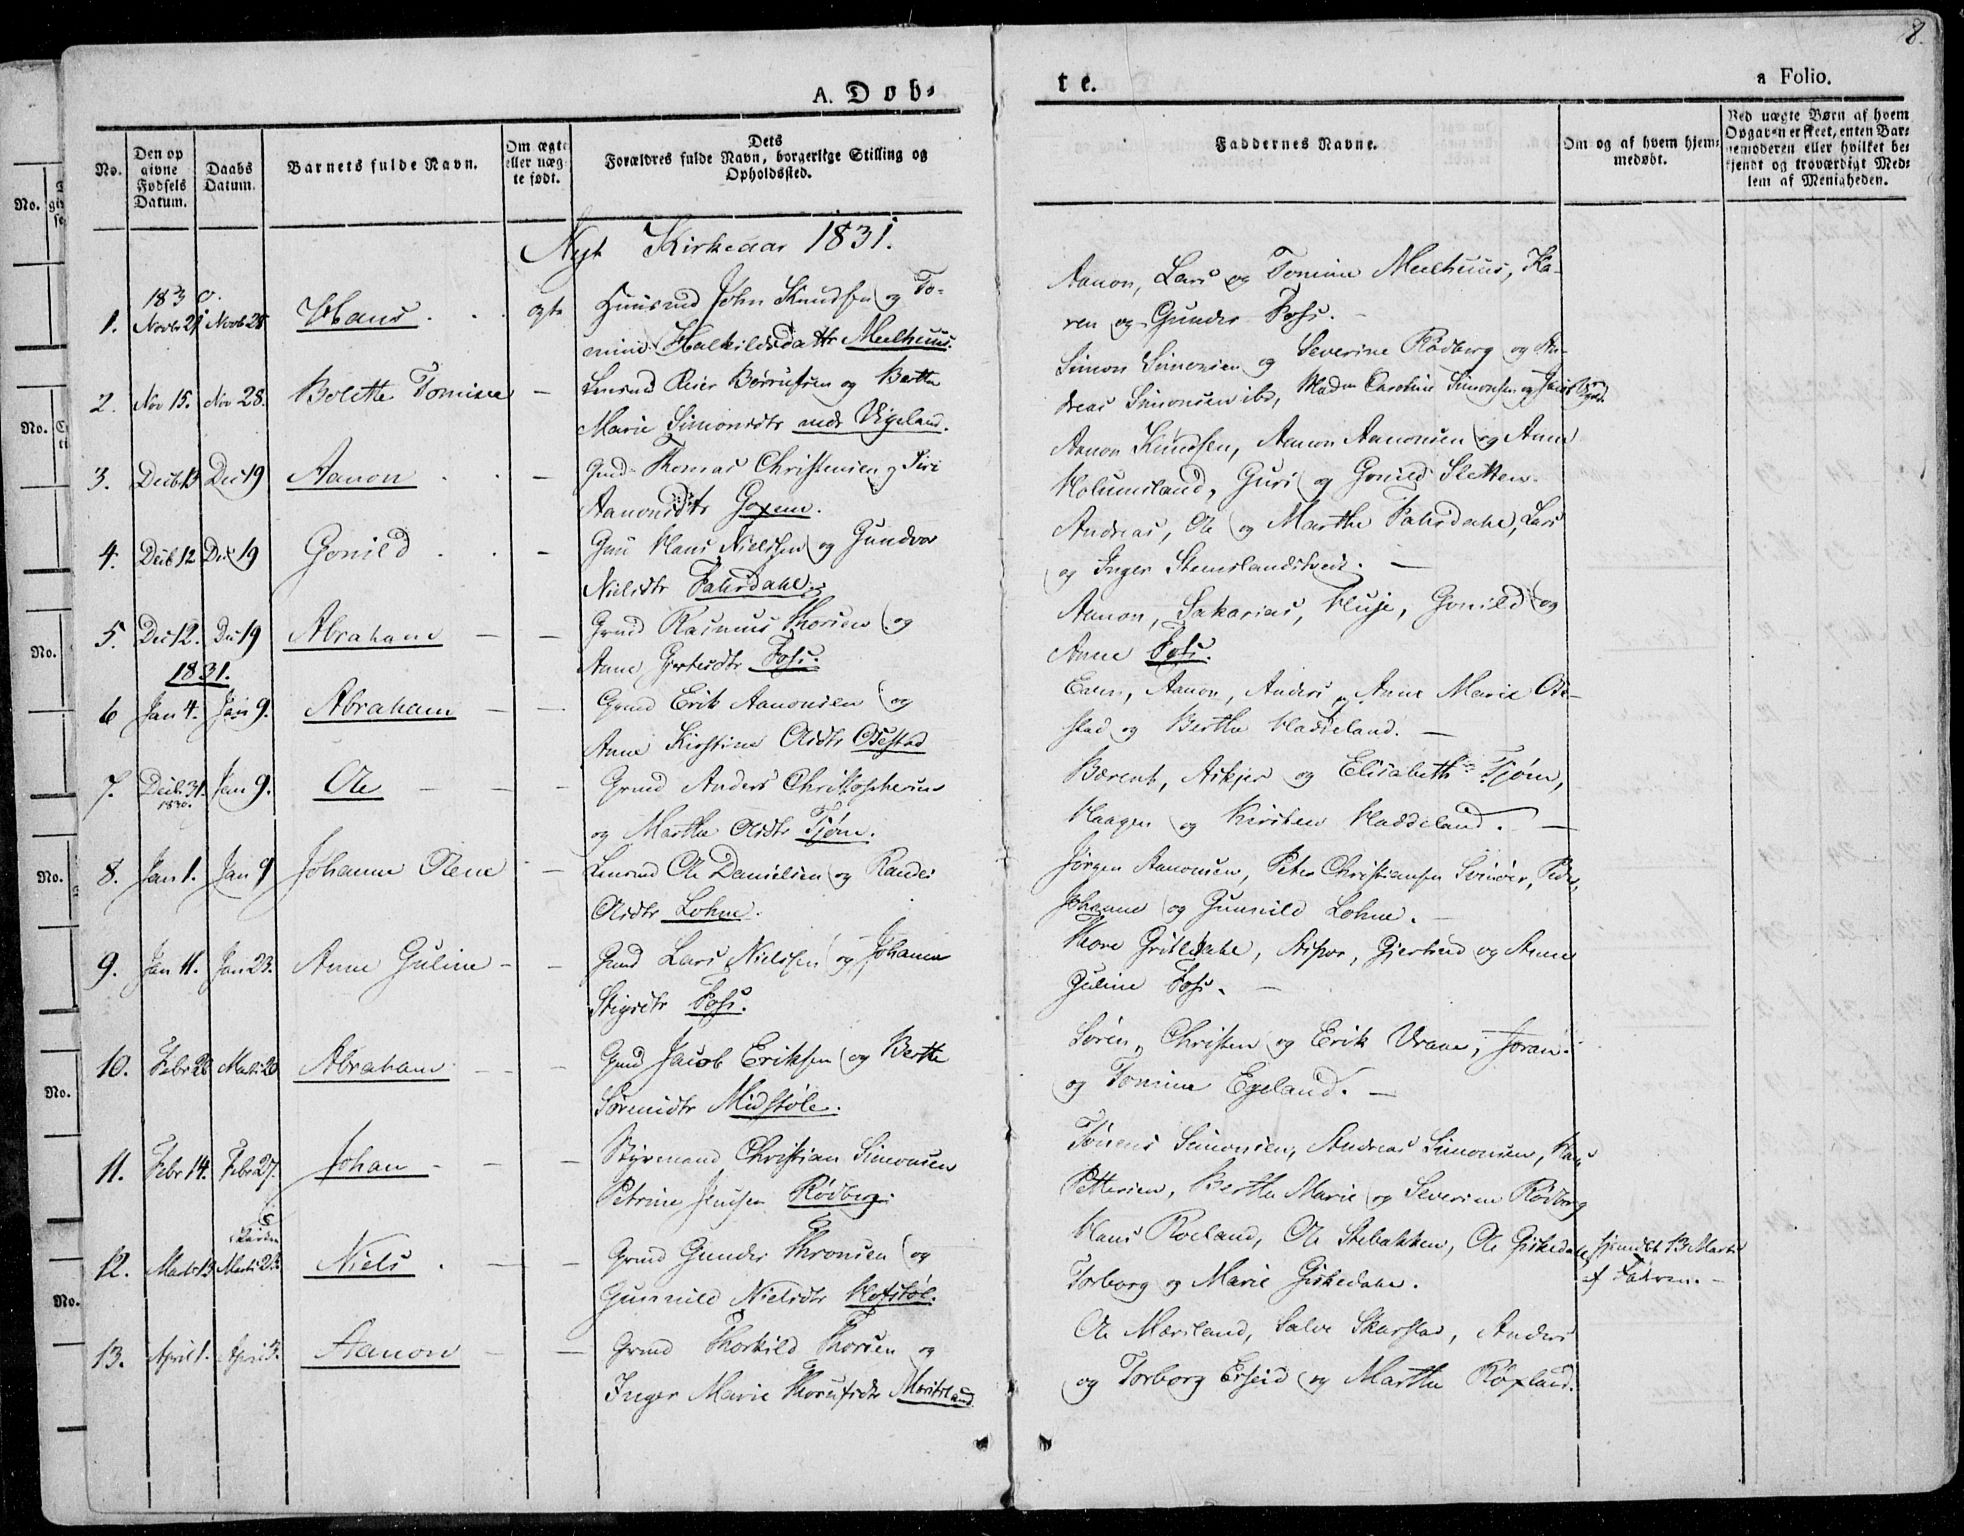 8.
A. Døb-
te.
a Folio.
No.
Den op
givne
Fødsels
Datum.
Daabs
Datum.
Barnets fulde Navn.
Om ægte
eller uæg-
te født.
Dets
Forældres fulde Navn, borgerlige Stilling og
Opholdssted.
Faddernes Navne.
Om og af hvem hjem-
medøbt.
Ved uægte Børn af hvem
Opgaven er skeet, enten Bar-
nemoderen eller hvilket be-
kjendt og troværdigt Med-
lem af Menigheden.
Nyt Kirkeaar 1831.
1830.
1. Novbr 21 Novb 28 Hans . . ægte Huusmd John Knudsen og To-
mine Halkildsdattr Meelhuus.
Aanon, Lars og Tomine Meelhuus, Ka-
ren og Gunder Foss.
2. Nov 15. Nov 28. Bolette Tomine — Reier Børrufsen og Berthe
Marie Simonsdtr nedr Vigeland.
Simon Simonsen og Severine Rødberg og An-
dreas Simonsen ibd, Madm Caroline Simonsen og
3. Decb 13 Dec 19 Aanon . . — Gmd Thomas Christensen og Siri
Aanonsdtr
Aanon Knudsen, Aanon Aanonsen og Anne
Holumsland, Guri og Gonild Sletten.
4. Decb 12 Dec 19 Gonild . . — Hans Nielsen og Gundvor
Nielsdtr Fahrdahl
Andreas, Ole og Marthe Fahrdahl, Lars
og Inger
5. Dec 12. Dec 19 Abraham — — Grmd Rasmus Thorsen og
Anne Gjertsdtr Foss.
Aanon, Sakarias, Gonild og
Anne Foss.
1831.
6 Jan 4. Jan 9. Abraham — — Grmd Erik Aanonsen og
Anne Kirstine Olsdtr Odestad
Even, Aanon, Anders og Anne Marie Ode-
stad og Berthe Haddeland. —
7. Decb 31. Jan 9. Ole — — — Grmd Anders Christophersen
1830.
og Marthe Olsdtr Tjøm.
Berent, Askjer og Elisabeth Tjøm,
Haagen og Kirsten Haddeland. —
8. Jan 1. Jan 9 Johanne Olene — Ole Danielsen og Randi
Olsdtr Lohne.
Jørgen Aanonsen, Peter Christiansen Svinør, Peder,
Johanne og Gunnild Lohne. —
9. Jan 11. Jan 23. Anne Guline — — Gmd Lars Nielsen og Johanne
Stigsdtr Foss.
Thore Asper, Gjertrud og Anne
Guline Foss. —
10. Febr 26 Marts 20 Abraham — — Gmd Jacob Eriksen og Berthe
Sørensdtr Midstøle.
Søren, Christen og Erik Vraae, Joran
og Tomine Egeland. —
11. Febr 14. Febr 27. Johan — — — Styrmand Christian Simonsen
Petrine Jensen Rødberg.
Simonsen, Andreas Simonsen, Hans
Pettersen, Berthe Marie og Severine Rødberg
12. Marts 13 Marts 23. Niels . — — Grmd Gunder Thronsen og
Gunnild Nielsdtr Hofstøl.
Hans Roeland, Ole Stebakken, Ole Girkedale,
Torborg og Marie Girkedale.
hjemdbt 13 Marts
af Faderen. —
13. April 1. April 3. Aanon — — Grmd Thorkild Thorsen og
Inger Marie
Ole Møreland, Salve Skarstad, Anders
og Torborg Erseid og Marthe Røyland.